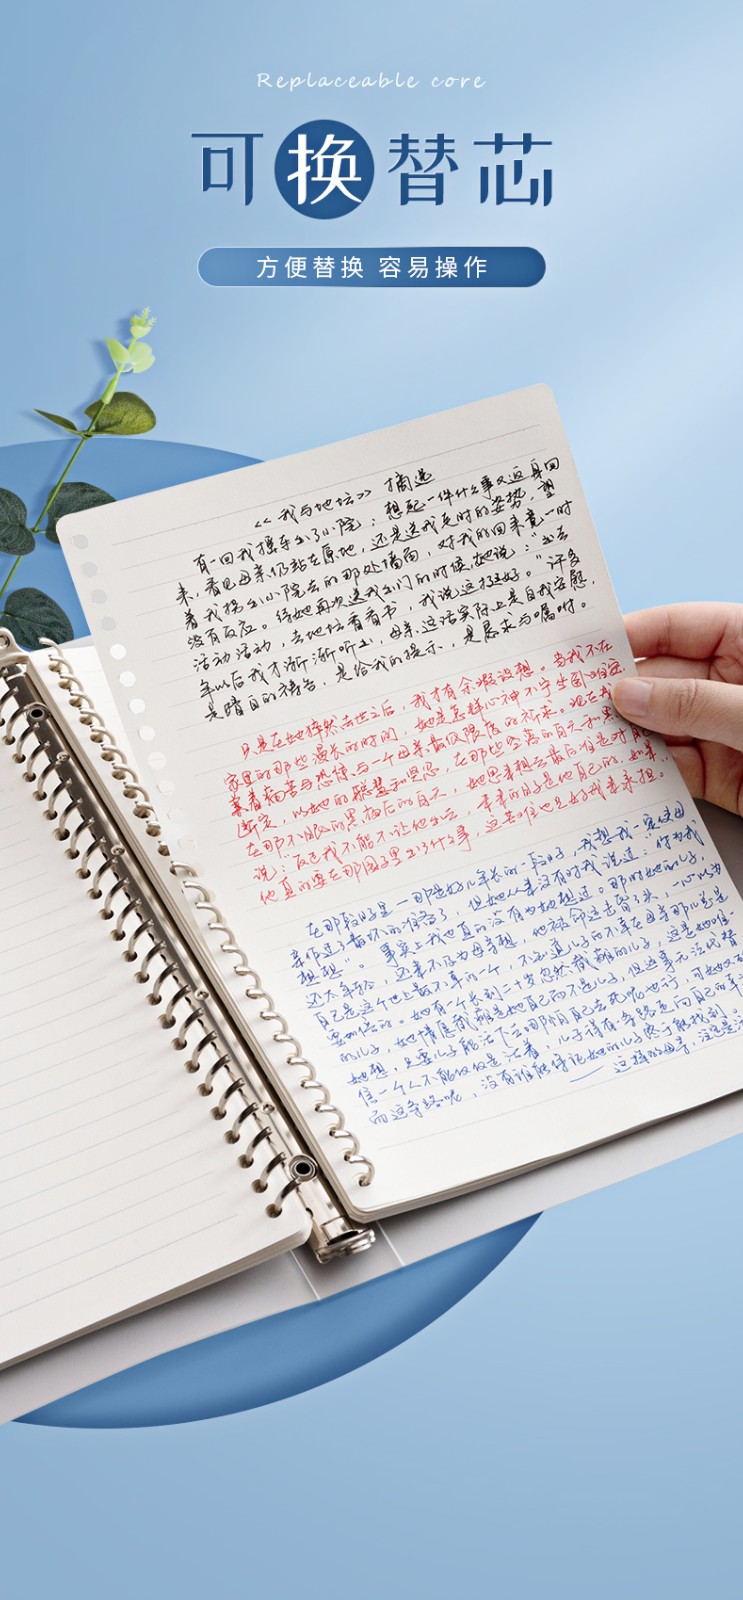 Replaceable core
可换替芯
方便替换 容易操作
《我与地坛》 摘选
有一回我摇车出了小院；想起一件什么事又返身回
来，看见母亲仍站在原地，还是送我走时的姿势，望
着我拐出小院去的那处墙角，对我的回来竟一时
没有反应。待她再次送我出门的时候，她说："出去
活动活动，去地坛看看书，我说这挺好。"许多
年以后我才渐渐听出，母亲这话实际上是自我安慰，
是暗自的祷告，是给我的提示，是恳求与嘱咐。
只是在她猝然去世之后，我才有余暇设想。当我不在
家里的那些漫长的时间，她是怎样心神不宁坐卧难宁
兼着痛苦与惊恐与一个母亲最低限度的祈求。现在我
断定，以她的聪慧和坚忍，在那些空落的白天后的黑
在那不眠的黑夜后的白天，她思来想去最后准是对自己
说："反正我不能不让他出去，未来的日子是他自己的，如果
他真的要在那园子里出了什么事，这苦难也只好我来承担。
在那段日子里——那是好几年长的一段日子，我想我一定使母
亲作过了最坏的准备了，但她从来没有对我说过："你为我
想想"。事实上我也真的没有为她想过。那时她的儿子，
还太年轻，还来不及为母亲想，他被命运击昏了头，一心以为
自己是世上最不幸的一个，不知道儿子的不幸在母亲那儿总是
要加倍的。她有一个长到二十岁忽然截瘫的儿子，这是她唯一
的儿子，她情愿截瘫的是自己而不是儿子，但这事无法代替
她想，只要儿子能活下去哪怕自己去死呢也行，可她又
信一个人不能仅仅是活着，儿子得有条路走向自己的幸
而这条路呢，没有谁能保证她的儿子终于能找到。
——这样的母亲，注定是